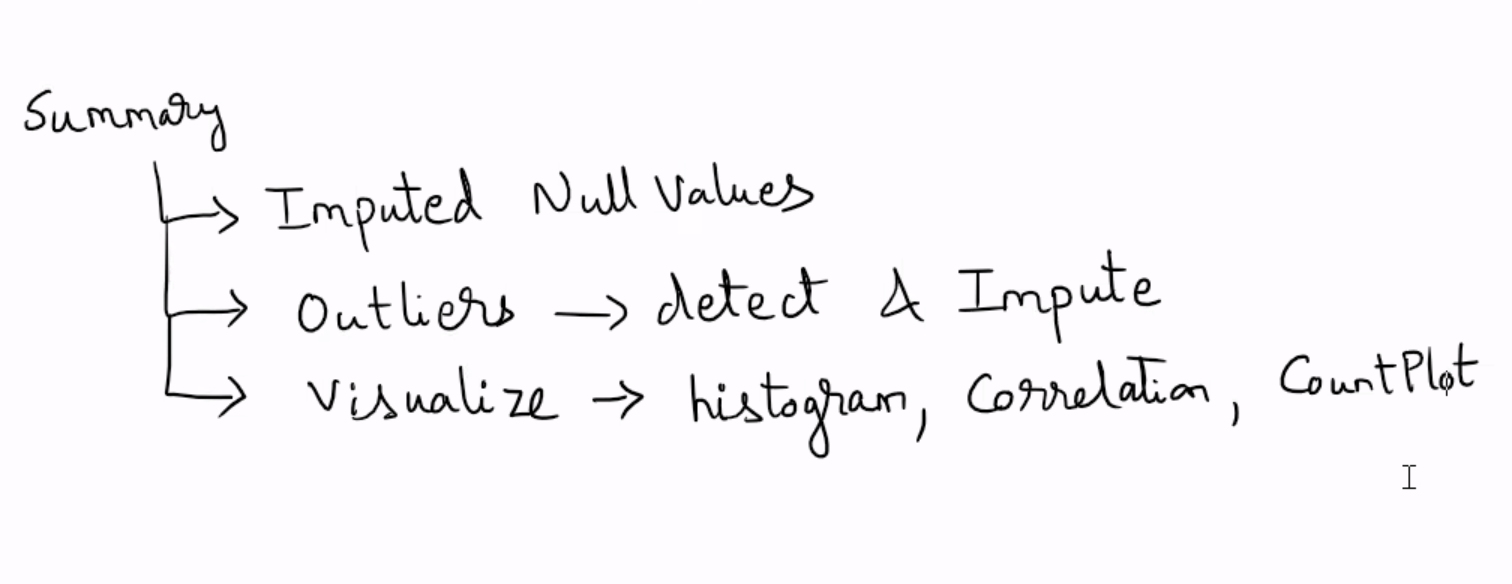 Summary
→ Imputed Null Values
→ Outliers → detect & Impute
→ Visualize → histogram, Correlation, CountPlot